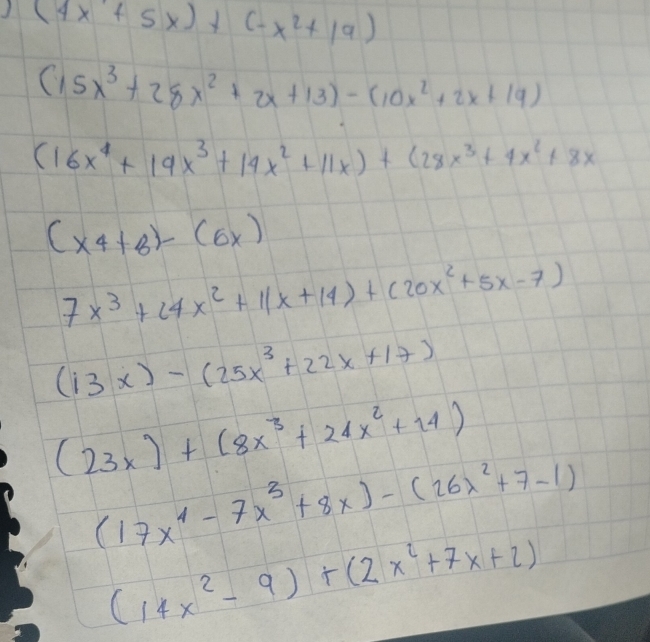 ) (4x + 5x) + (-x²+19)
(15x³ + 28x² + 2x + 13) - (10x² + 2x + 19)
(16x⁴ + 19x³ + 14x² + 11x) + (28x³ + 4x² + 8x
(x4+8)- (6x)
7x³ + 24x² + 11x + 14) + (20x² + 5x - 7)
(13x) - (25x³ + 22x + 17)
(23x) + (8x³ + 24x² + 14)
(17x⁴ - 7x³ + 8x) - (26x² + 7 - 1)
(14x² - 9) + (2x² + 7x + 2)